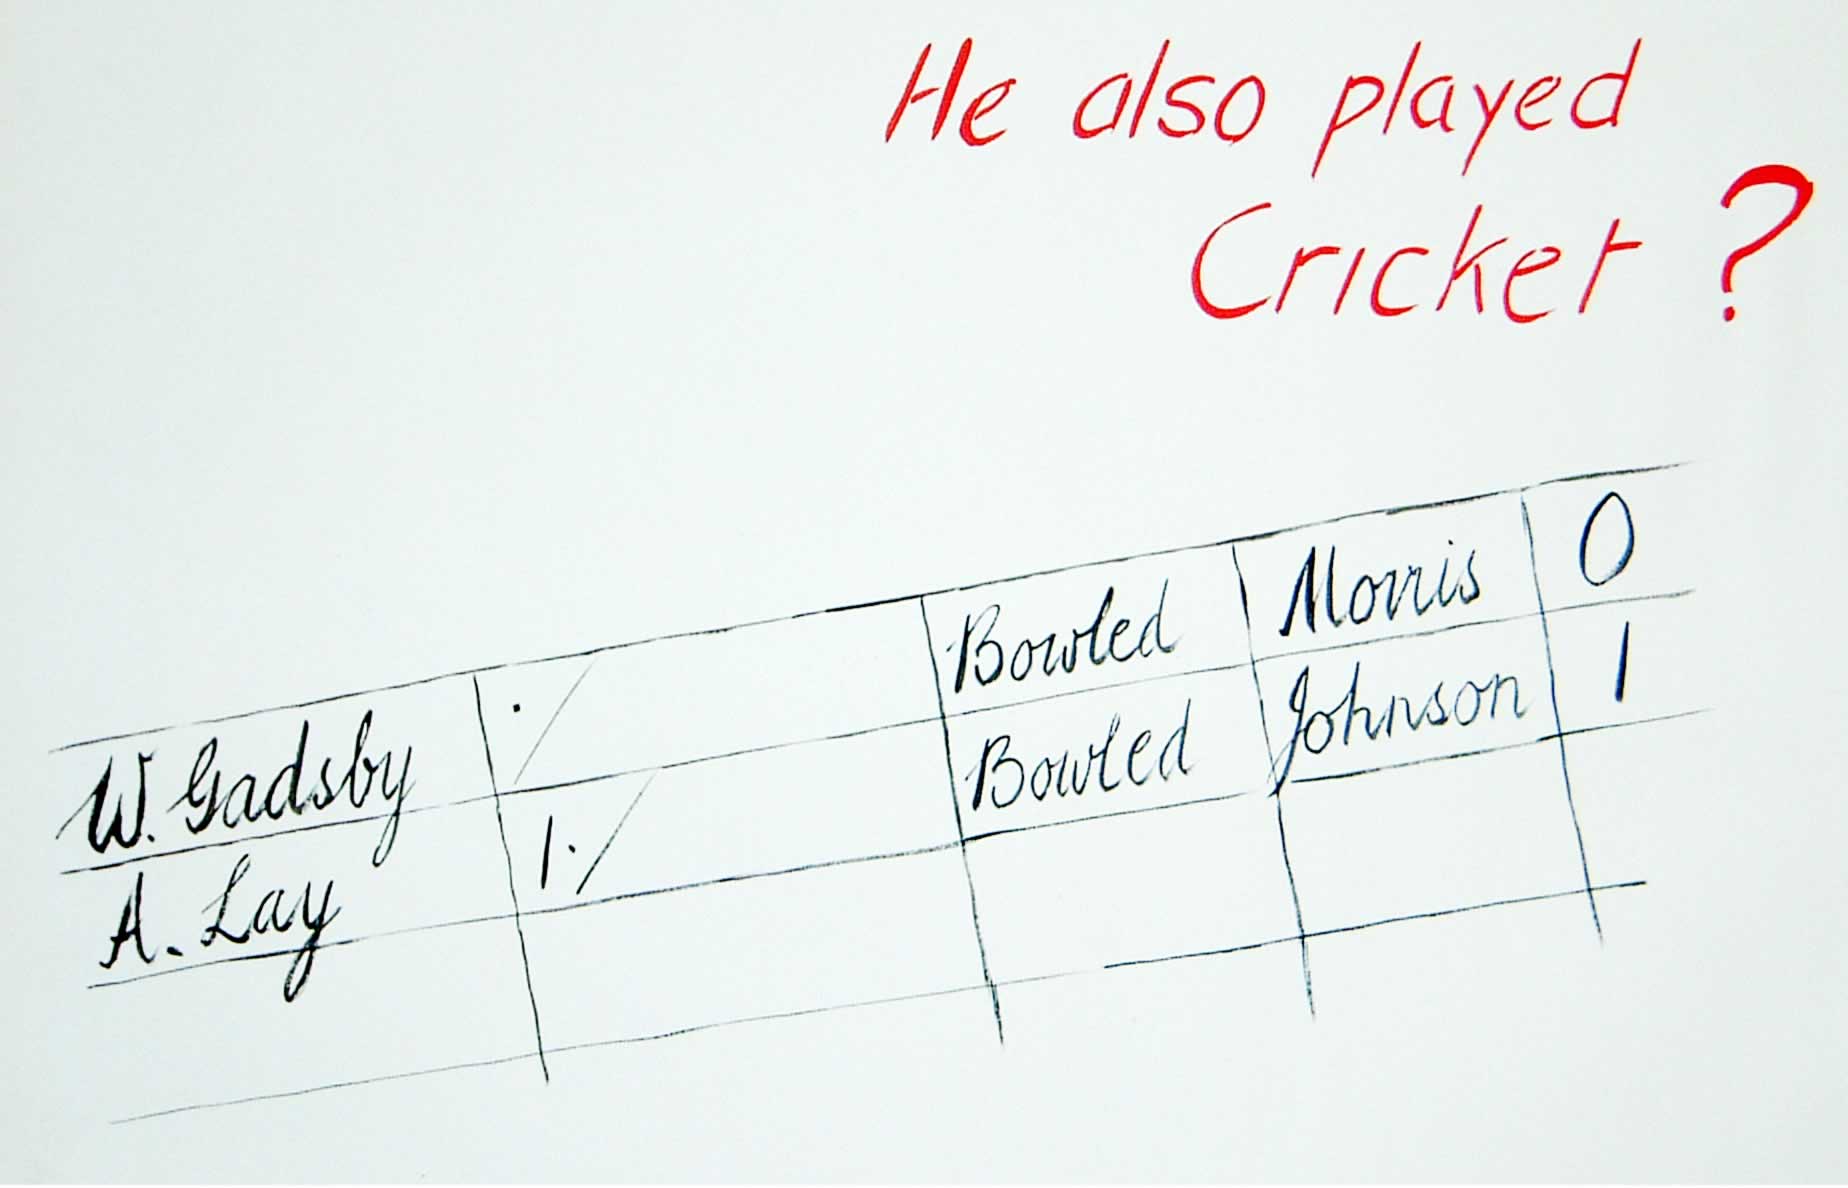 He also played
Cricket ?
W. Gadsby ./ Bowled Morris 0
A. Lay 1./ Bowled Johnson 1